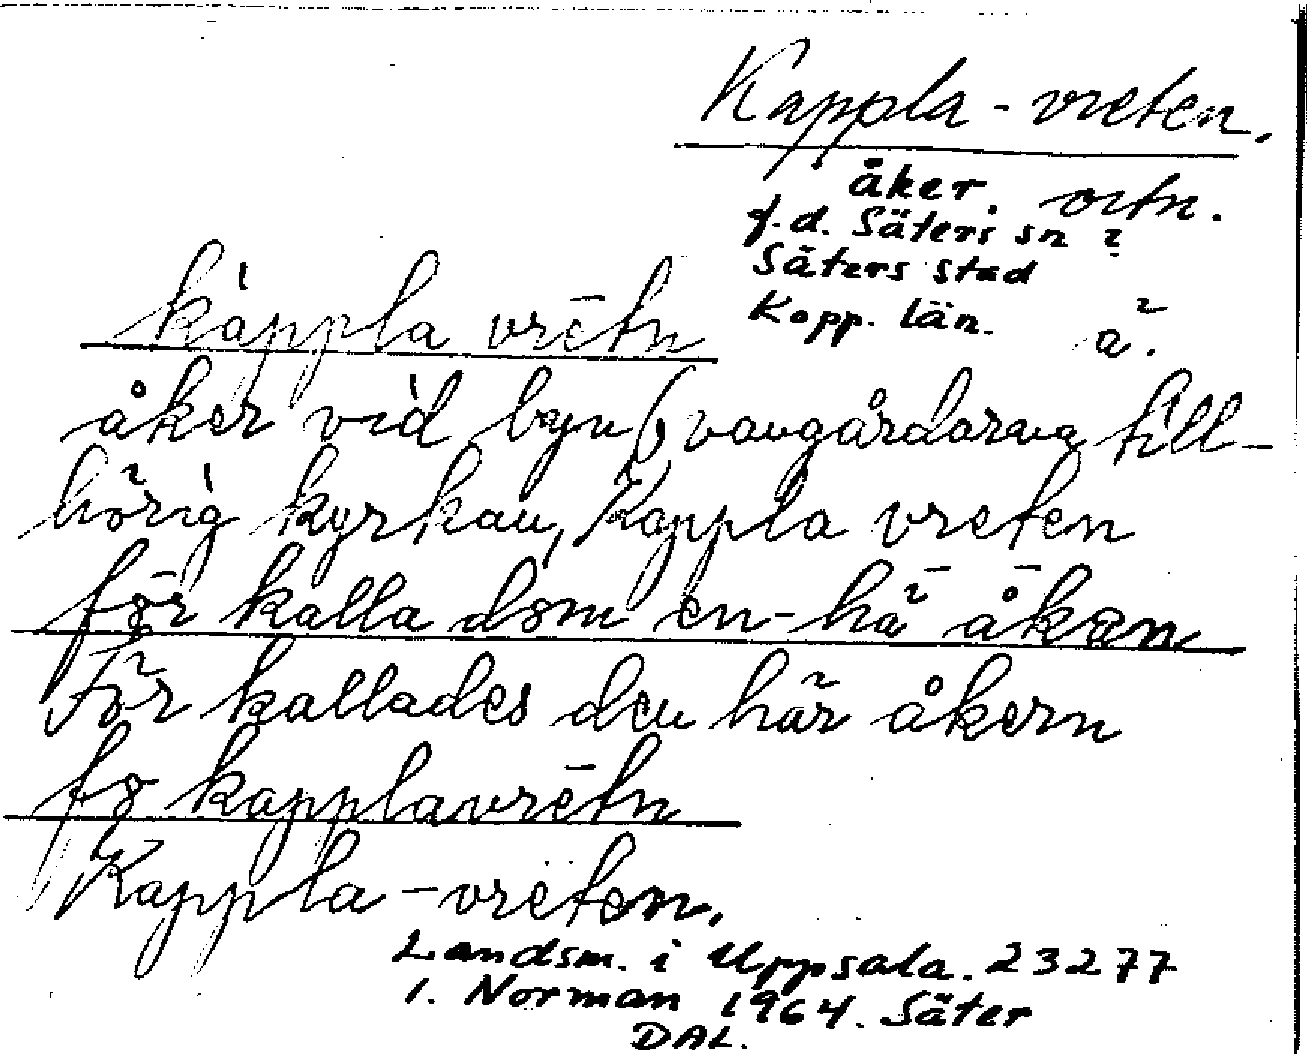 Kappla - vreten.
åker. ortn.
f.d. Säters sn ?
Säters stad
Kopp. län. a².
kàppla vrētn
åker vid byn Provgårdarna till-
hörig kyrkan, Kappla vreten
för kalla dom en-hä åkan
För kallades den här åkern
fo kapplavrētn
Kappla - vreten.
Landsm. i Uppsala. 23277
I. Norman 1964. Säter
DAL.